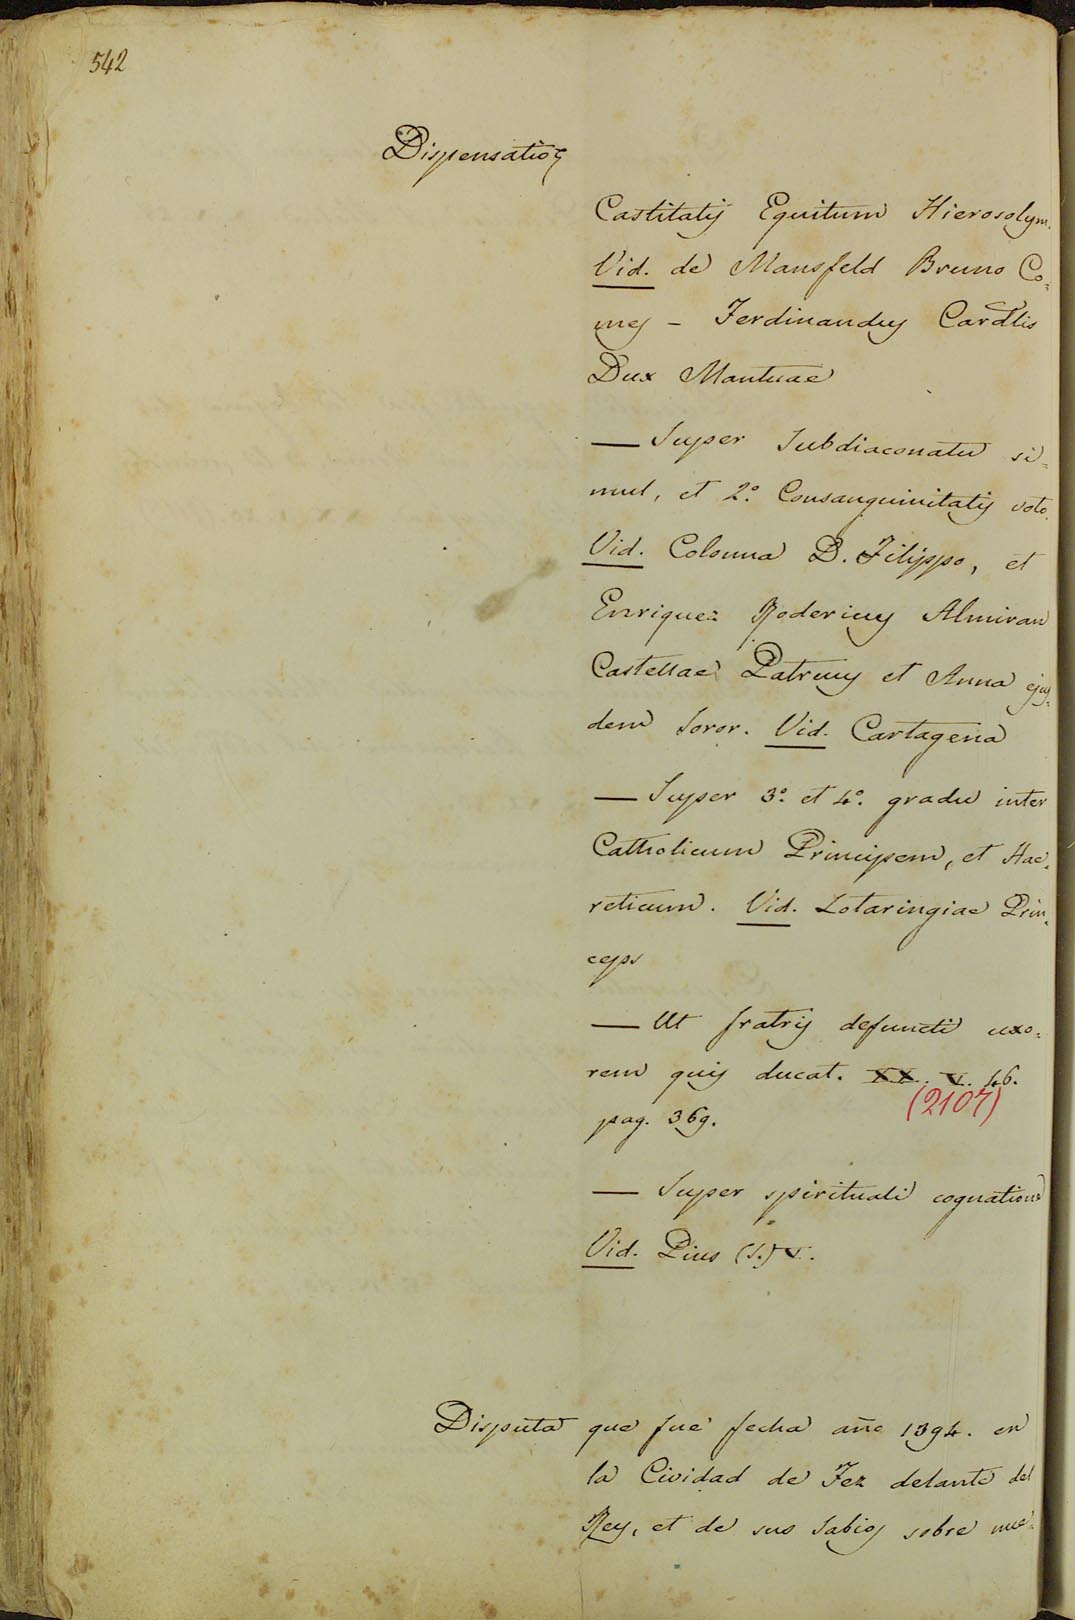 542
Dispensatioę
Castitatis Equitum Hierosolym.
Vid. de Mansfeld Bruno Co=
mes – Ferdinandus Cardlis
Dux Mantuae
— Super Subdiaconatu si=
mul, et 2º. Consanguinitatis voto.
Vid. Colonna D. Filippo, et
Enriquez Rodericus Almiran
Castellae Patruus et Anna ejus=
dem Soror. Vid. Cartagena
— Super 3º. et 4º. gradu inter
Catholicum Principem, et Hae=
reticum. Vid. Lotaringiae Prin=
ceps
— Ut fratris defuncti uxo=
rem quis ducat. XX. V. 46.
(2107)
pag. 369.
— Super spirituali cognatione
Vid. Pius (S.) V.
Disputa que fue fecha año 1394. en
la Cividad de Fez delante del
Rey, et de sus Sabios sobre nue=